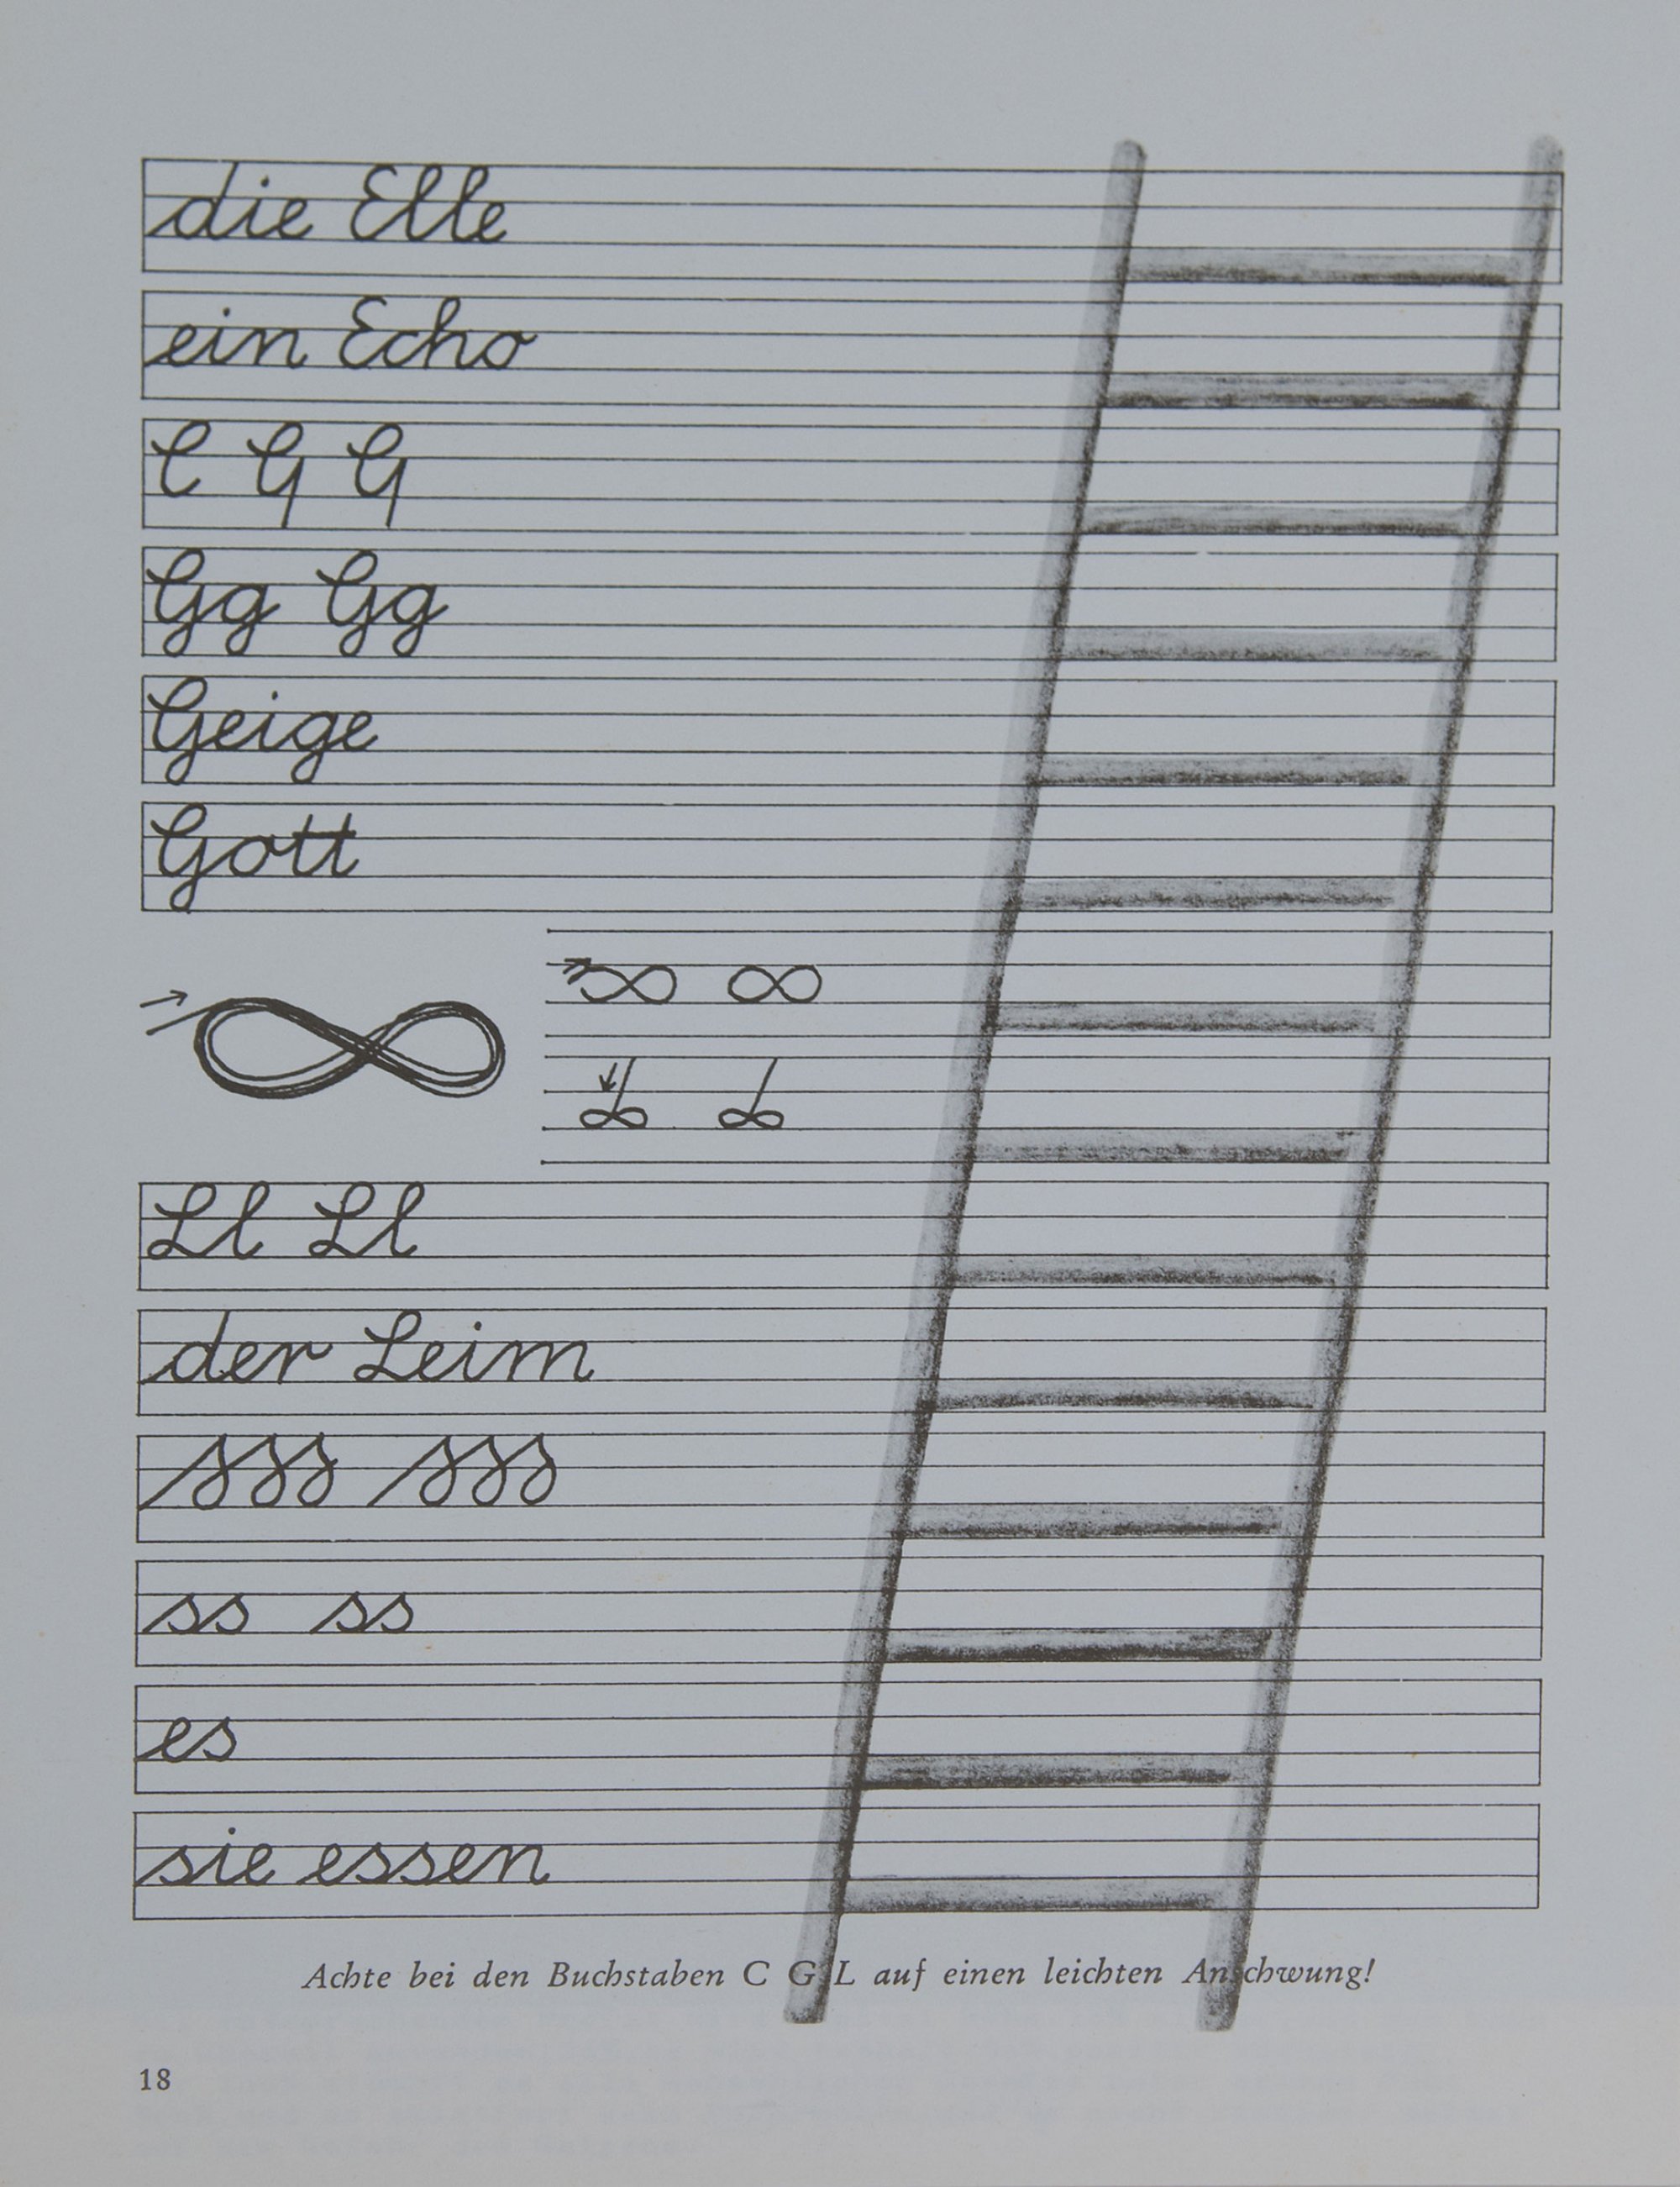 die Elle
ein Echo
C G G
Gg Gg
Geige
Gott
Ll Ll
der Leim
sss sss
ss ss
es
sie essen
Achte bei den Buchstaben C G L auf einen leichten Anschwung!
18